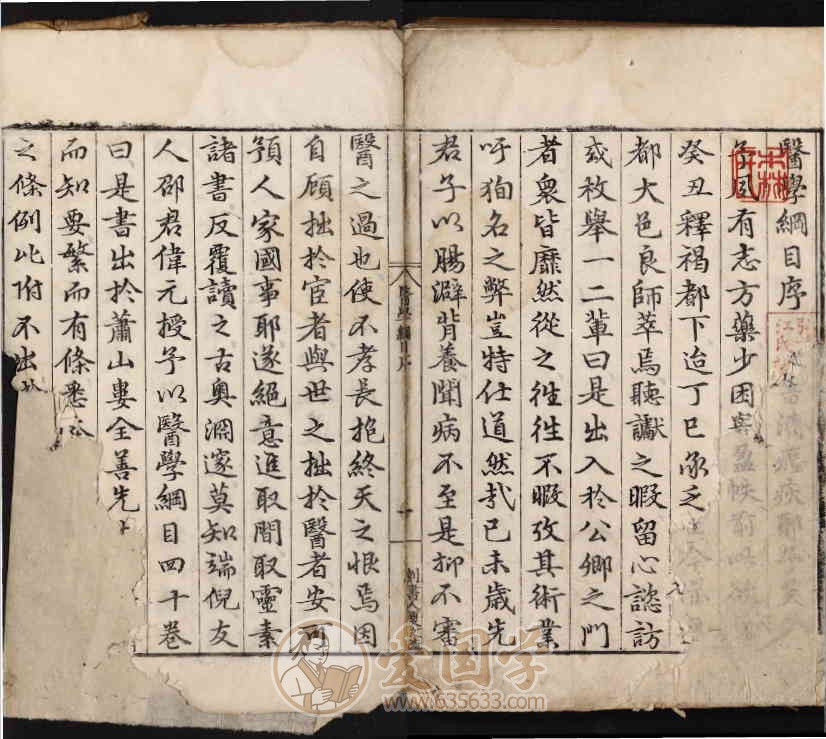 醫學綱目序
有志方藥少困
癸丑釋褐都下迨丁巳承乏
都大邑良師萃焉聽讞之暇留心諮訪
或枚舉一二輩曰是出入於公卿之門
者衆皆靡然從之徃徃不暇攷其術業
吁狥名之弊豈特仕道然㢤已未歳先
君子以腸澼背養聞病不至是抑不審
醫學綱目序
一
醫之過也使不孝長抱終天之恨焉因
自顧拙於宦者與世之拙於醫者安可
預人家國事耶遂絕意進取間取靈素
諸書反覆讀之古奥淵邃莫知端倪友
人邵君偉元授予以醫學綱目四十卷
曰是書出於蕭山婁全善先
而知要繁而有條悉
之條例此附不出
爱国学
www.635633.com